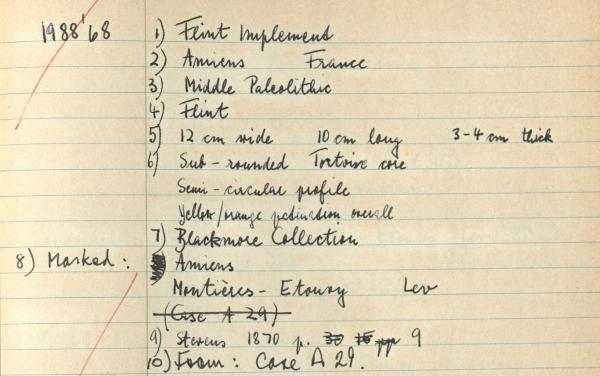 1988'68 1) Flint Implement
2) Amiens France
3) Middle Paleolithic
4) Flint
5) 12 cm wide 10 cm long 3-4 cm thick
6) Sub-rounded Tortoise core
Semi-circular profile
Yellow/orange patination overall
7) Blackmore Collection
8) Marked: Amiens
Montières-Etouvy Lev
(Case A 29)
9) Stevens 1870 p. 9
10) From: Case A 29.